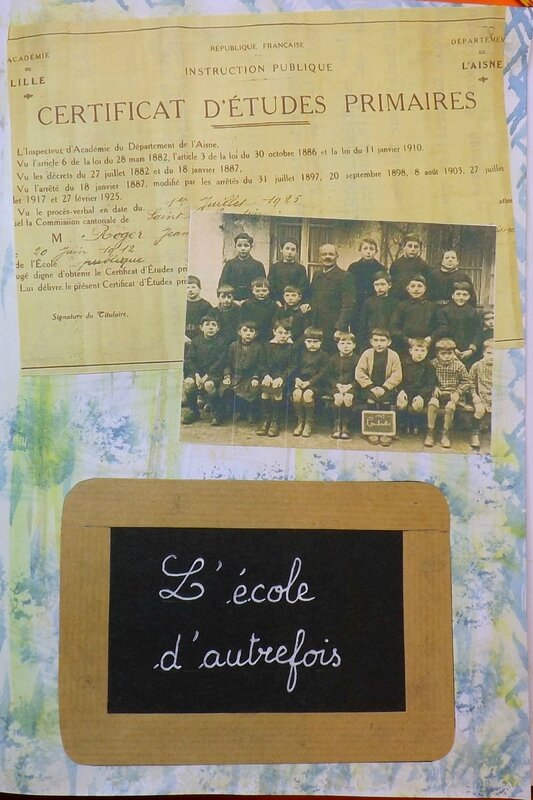 ACADÉMIE
DE
LILLE
RÉPUBLIQUE FRANÇAISE
INSTRUCTION PUBLIQUE
DÉPARTEMEN
DE
L'AISNE
CERTIFICAT D'ÉTUDES PRIMAIRES
L'Inspecteur d'Académie du Département de l'Aisne,
Vu l'article 6 de la loi du 28 mars 1882, l'article 3 de la loi du 30 octobre 1886 et la loi du 11 janvier 1910.
Vu les décrets du 27 juillet 1882 et du 18 janvier 1887,
Vu l'arrêté du 18 janvier 1887, modifié par les arrêtés du 31 juillet 1897, 20 septembre 1898, 8 août 1903, 27 juillet
let 1917 et 27 février 1925.
Vu le procès-verbal en date du 1er Juillet 1925
uel la Commission cantonale de Saint
M Roger Jean
20 Juin 1912
de l'École publique
ugé digne d'obtenir le Certificat d'Études pri
Lui délivre le présent Certificat d'Études pri
Signature du Titulaire,
L'école
d'autrefois